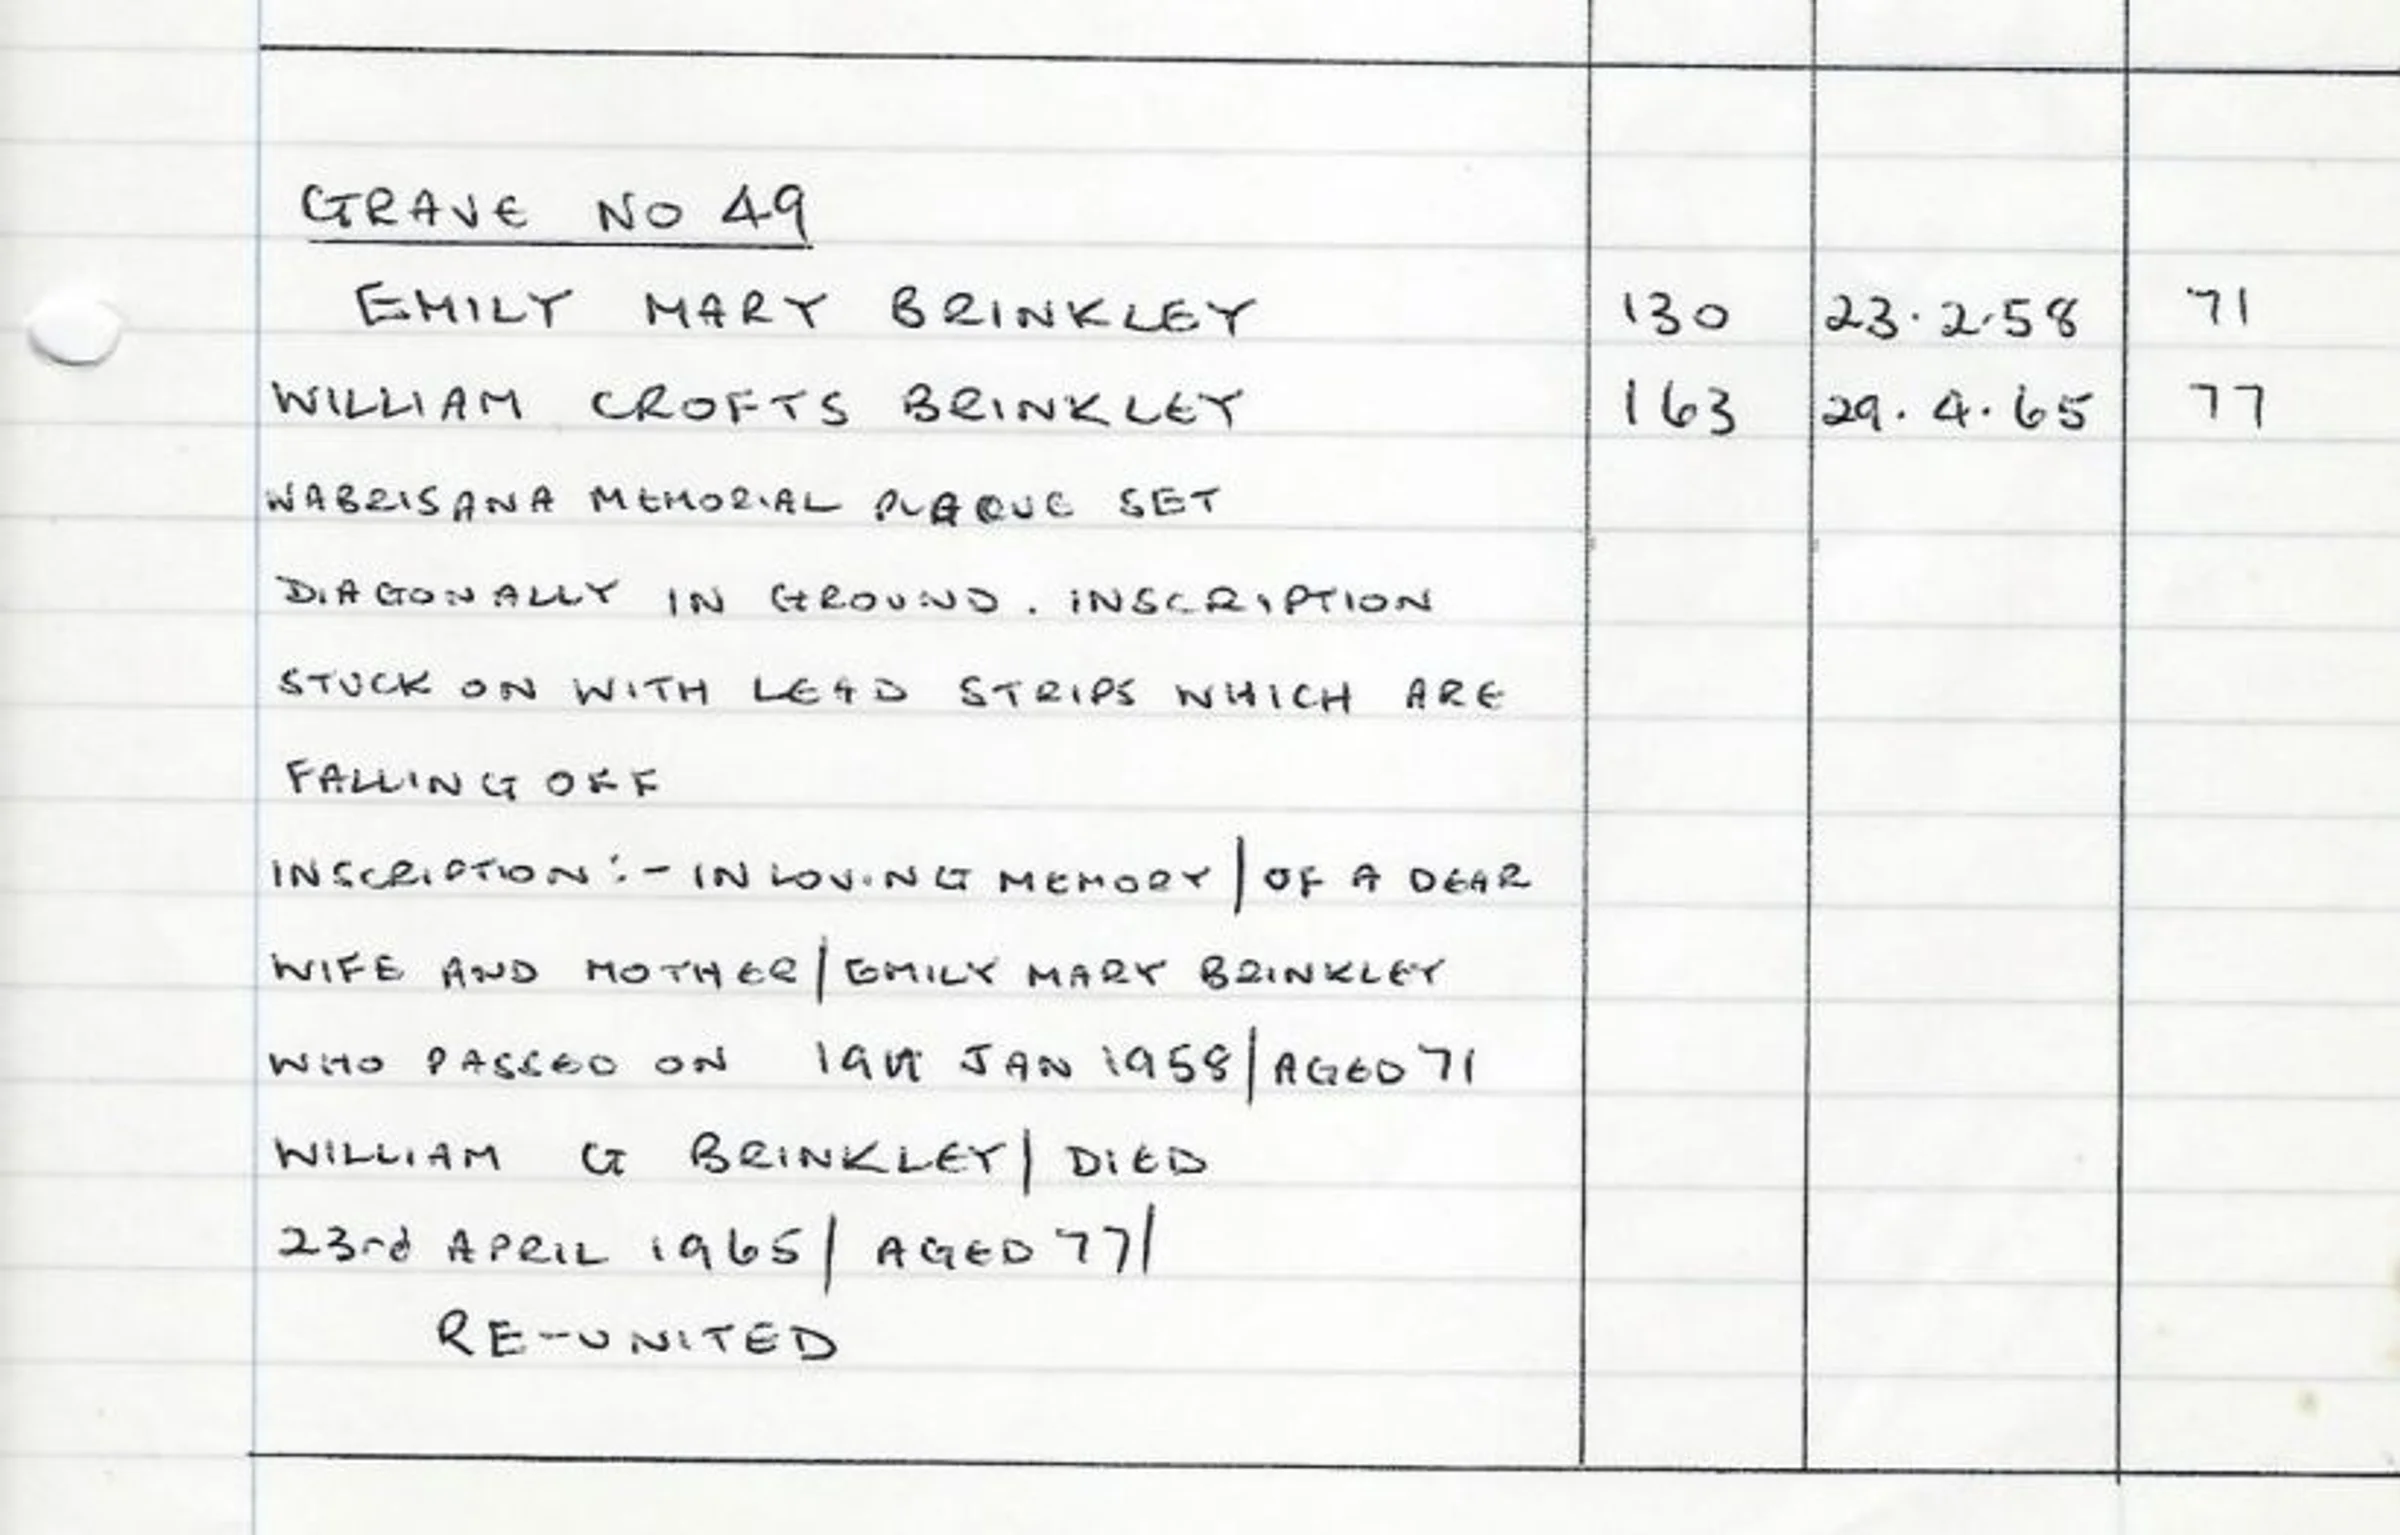 GRAVE NO 49
EMILY MARY BRINKLEY 130 23.2.58 71
WILLIAM CROFTS BRINKLEY 163 29.4.65 77
WABRISANA MEMORIAL PLAQUE SET
DIAGONALLY IN GROUND. INSCRIPTION
STUCK ON WITH LEAD STRIPS WHICH ARE
FALLING OFF
INSCRIPTION :- IN LOVING MEMORY | OF A DEAR
WIFE AND MOTHER | EMILY MARY BRINKLEY
WHO PASSED ON 19th JAN 1958 | AGED 71
WILLIAM G BRINKLEY | DIED
23rd APRIL 1965 | AGED 77 |
RE-UNITED